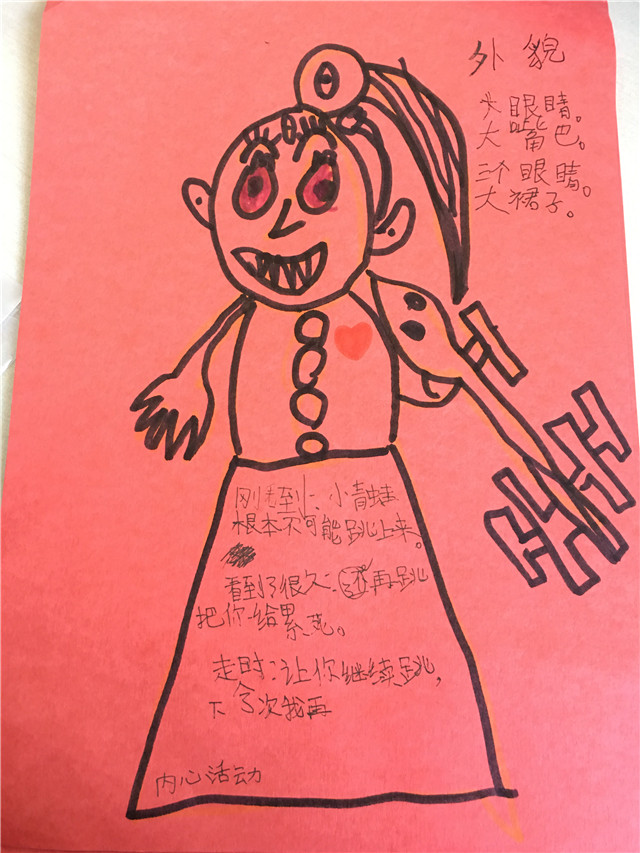 外貌
大眼睛。
大嘴巴。
三个眼睛。
大裙子。
刚看到:小青蛙
根本不可能跳上来。
看到了很久:还再跳
把你给累死。
走时:让你继续跳,
下今次我再
内心活动